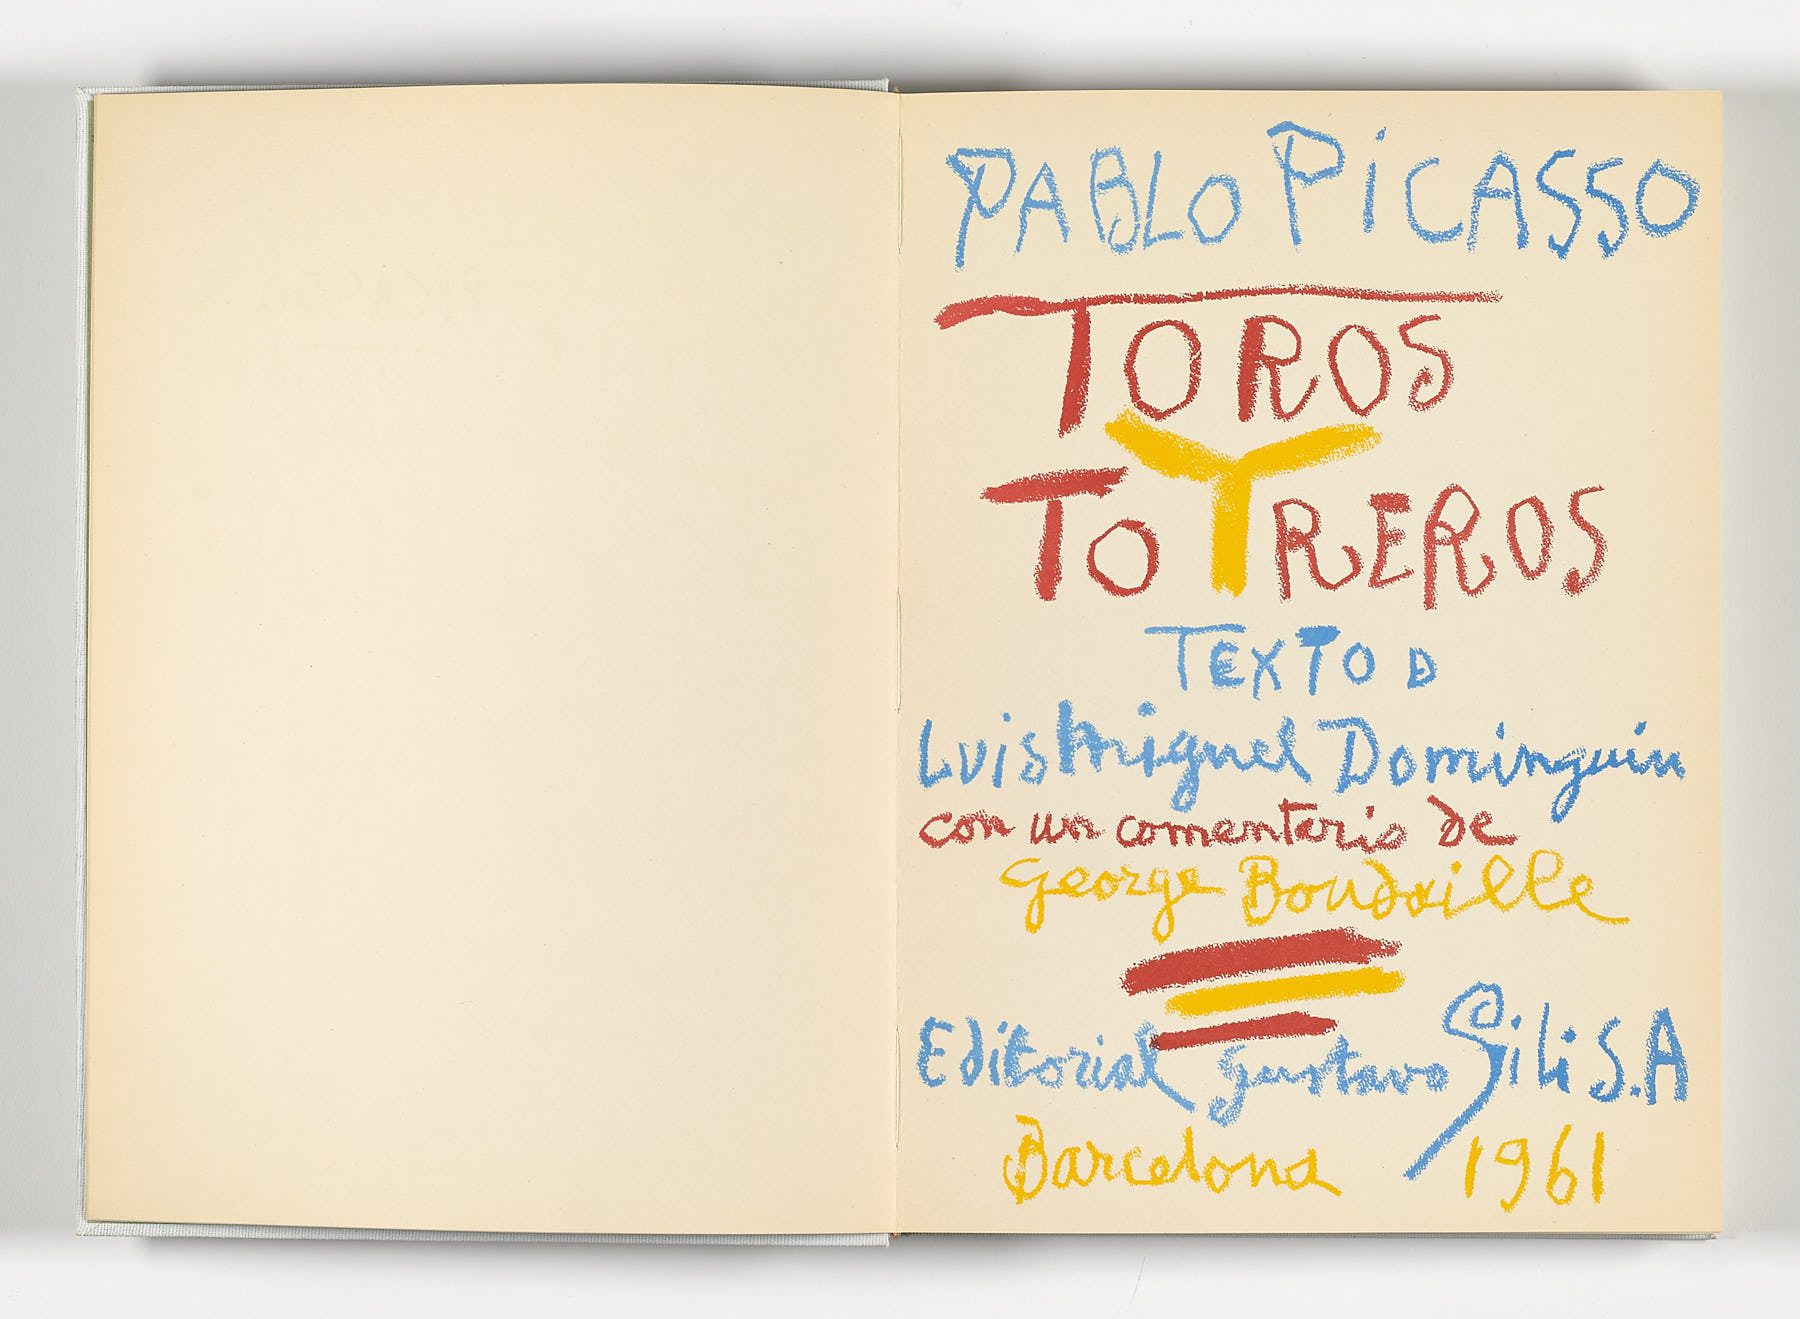 PABLO PiCASSO
TOROS
Y
TOREROS
TEXTO D
Luis Miguel Dominguin
con un comentario de
George Boudaille
Editorial Gustavo Gili S.A
Barcelona 1961